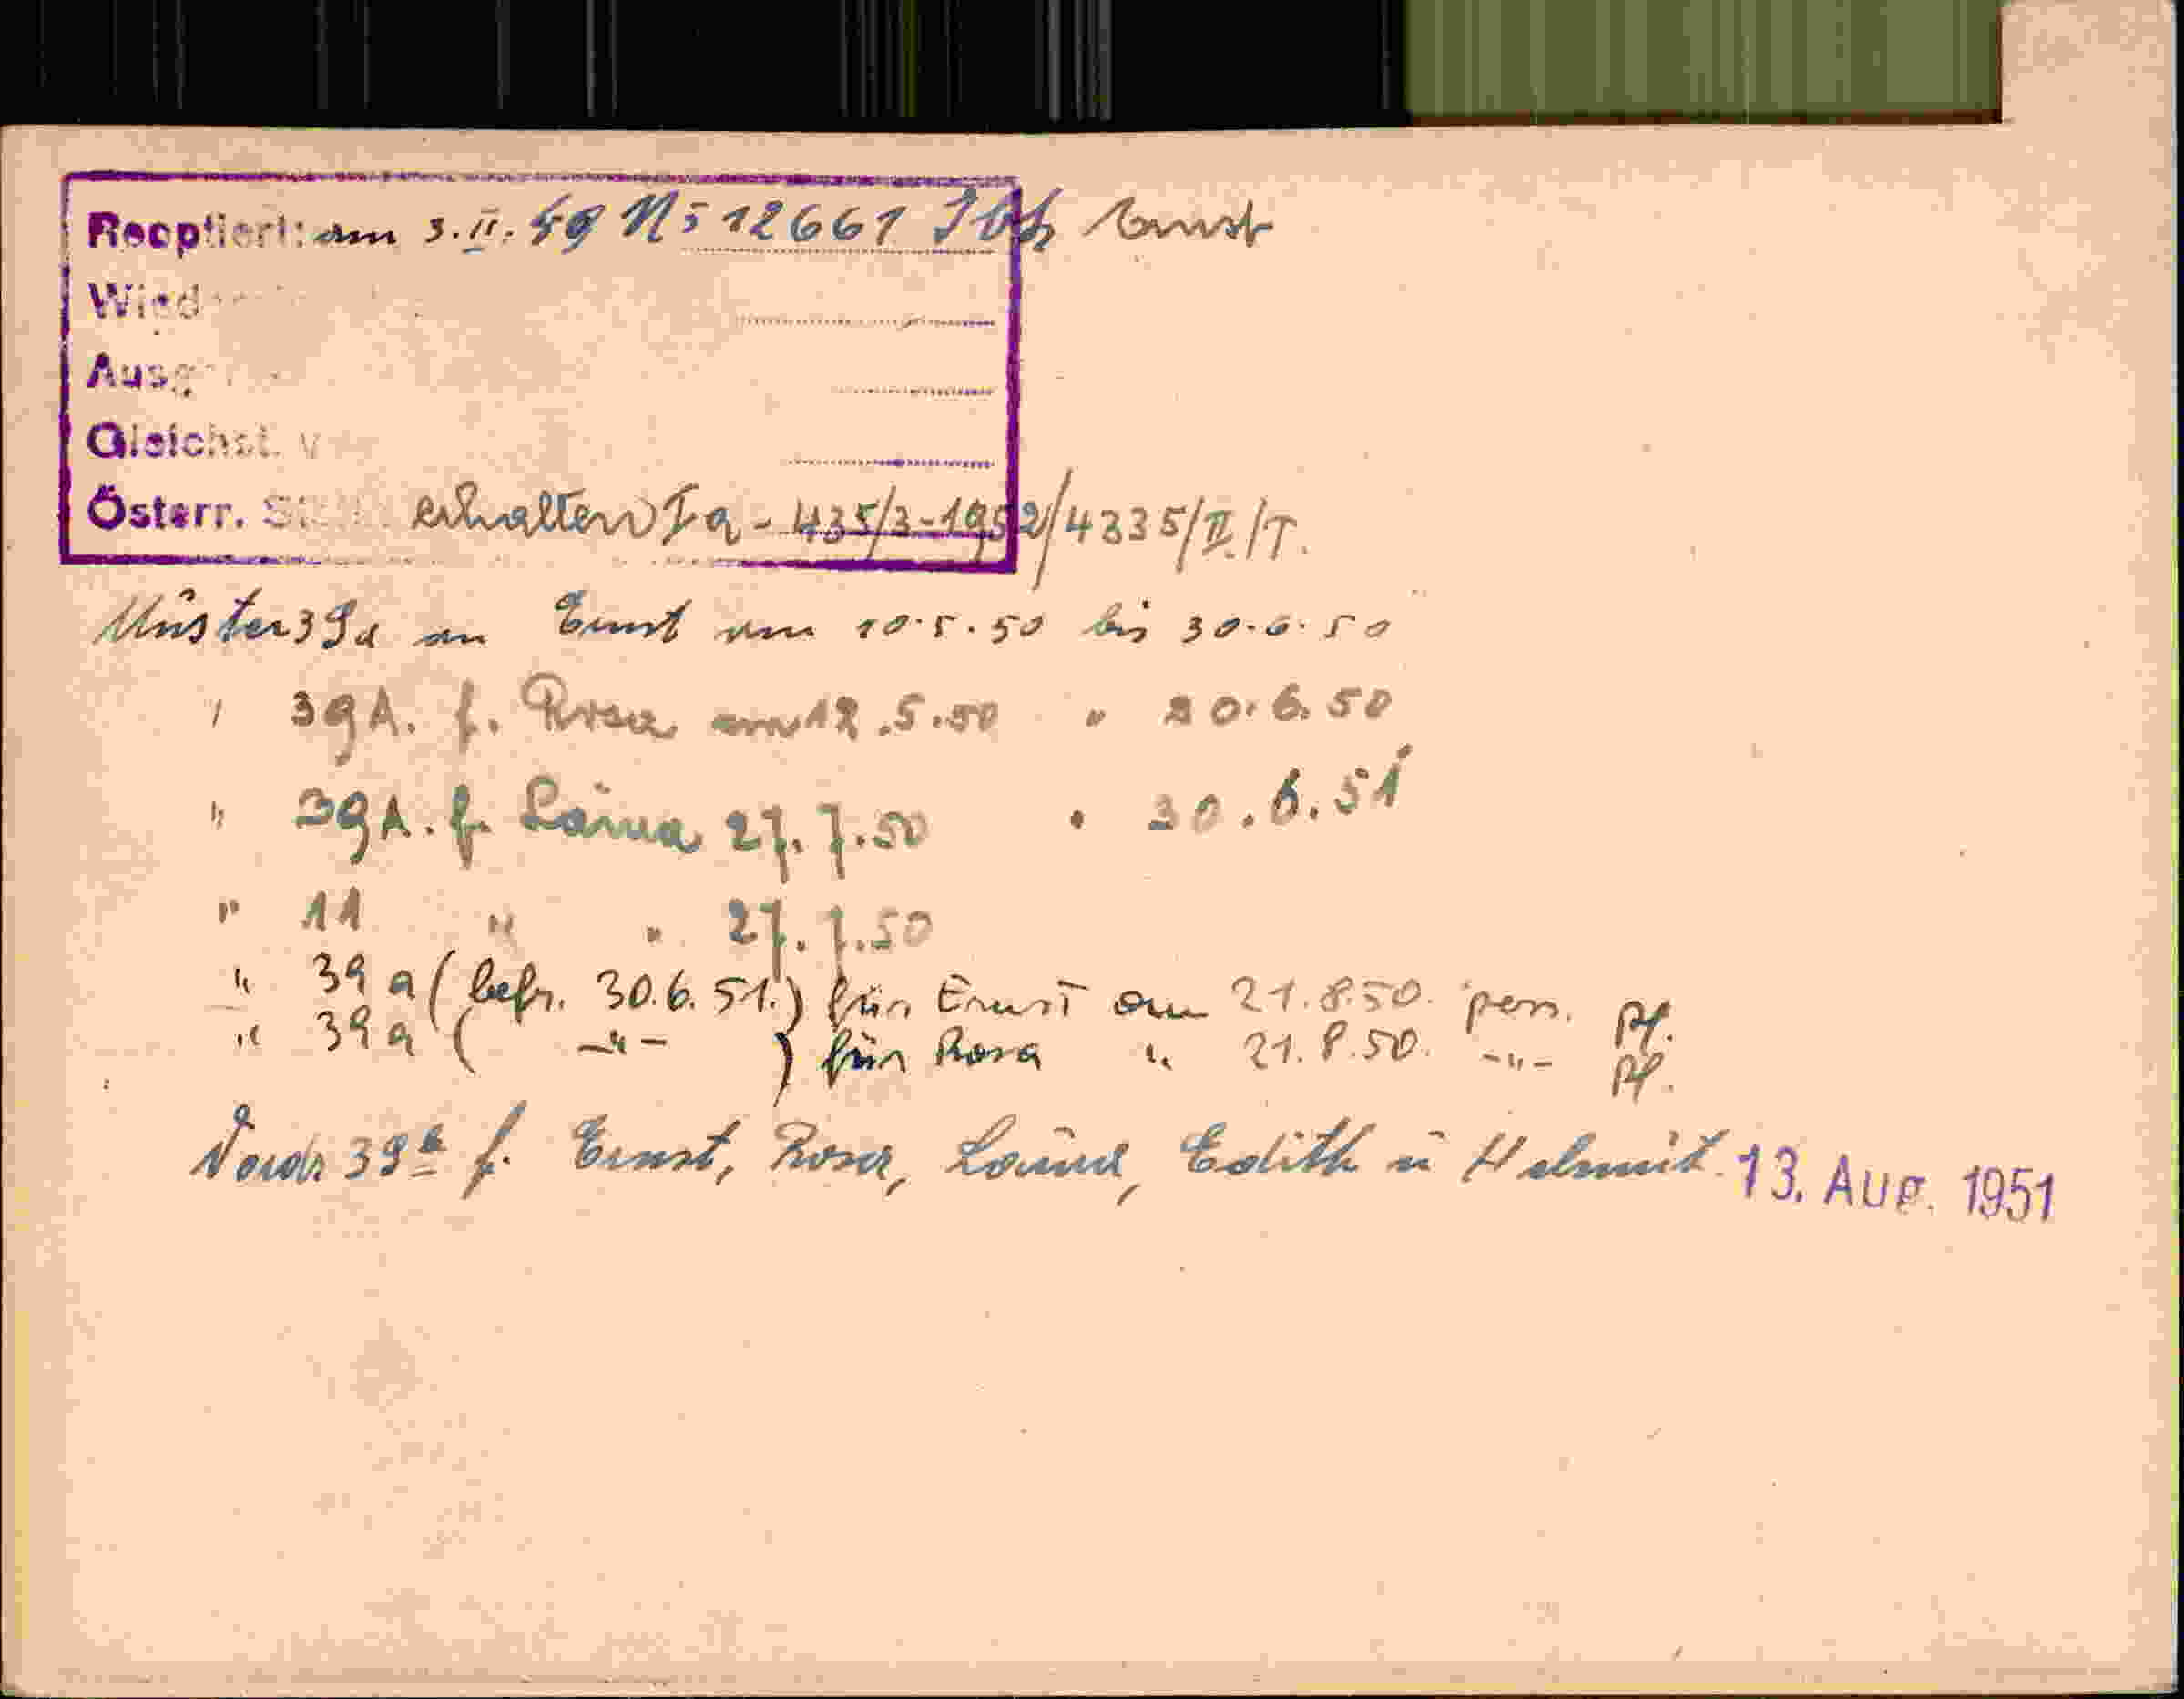 Reoptiert: am 3.II.49 N: 12661 Ernst
Wied
Ausg
Gleichst. v
Österr. St erhalten Ia - 435/3-1952/4335/II/T.
Muster 39a an Ernst am 10.5.50 bis 30.6.50
" 39A. f. Rosa am 12.5.50 " 30.6.50
" 39A. f. Laura 27.7.50 " 30.6.51
" 11 " " 27.7.50
" 39a (befr. 30.6.51.) für Ernst am 21.8.50. pers. Pf.
" 39a ( -"- ) für Rosa " 21.8.50. -"- Pf.
39a f. Ernst, Rosa, Laura, Edith u Helmut. 13. Aug. 1951